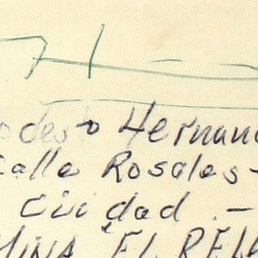 odesto Hernand
Calle Rosales-
Ciudad.-
MINA "EL RELA